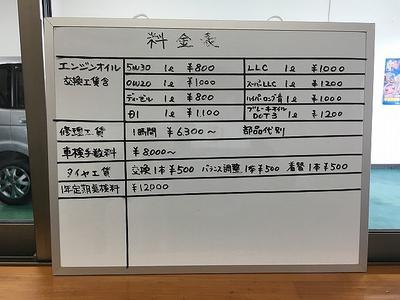 料金表
エンジンオイル 5W30 1ℓ ¥800 LLC 1ℓ ¥1000
交換工賃含 0W20 1ℓ ¥1000 スーパーLLC 1ℓ ¥1200
ディーゼル 1ℓ ¥800 1ℓ ¥1000
1ℓ ¥1,100 ブレーキオイル DOT3 1ℓ ¥1200
修理工賃 1時間 ¥6,300～ 部品代別
車検手数料 ¥8000～
タイヤ工賃 交換1本¥500 バランス調整1本¥500 着替1本¥500
1年定期点検料 ¥12000